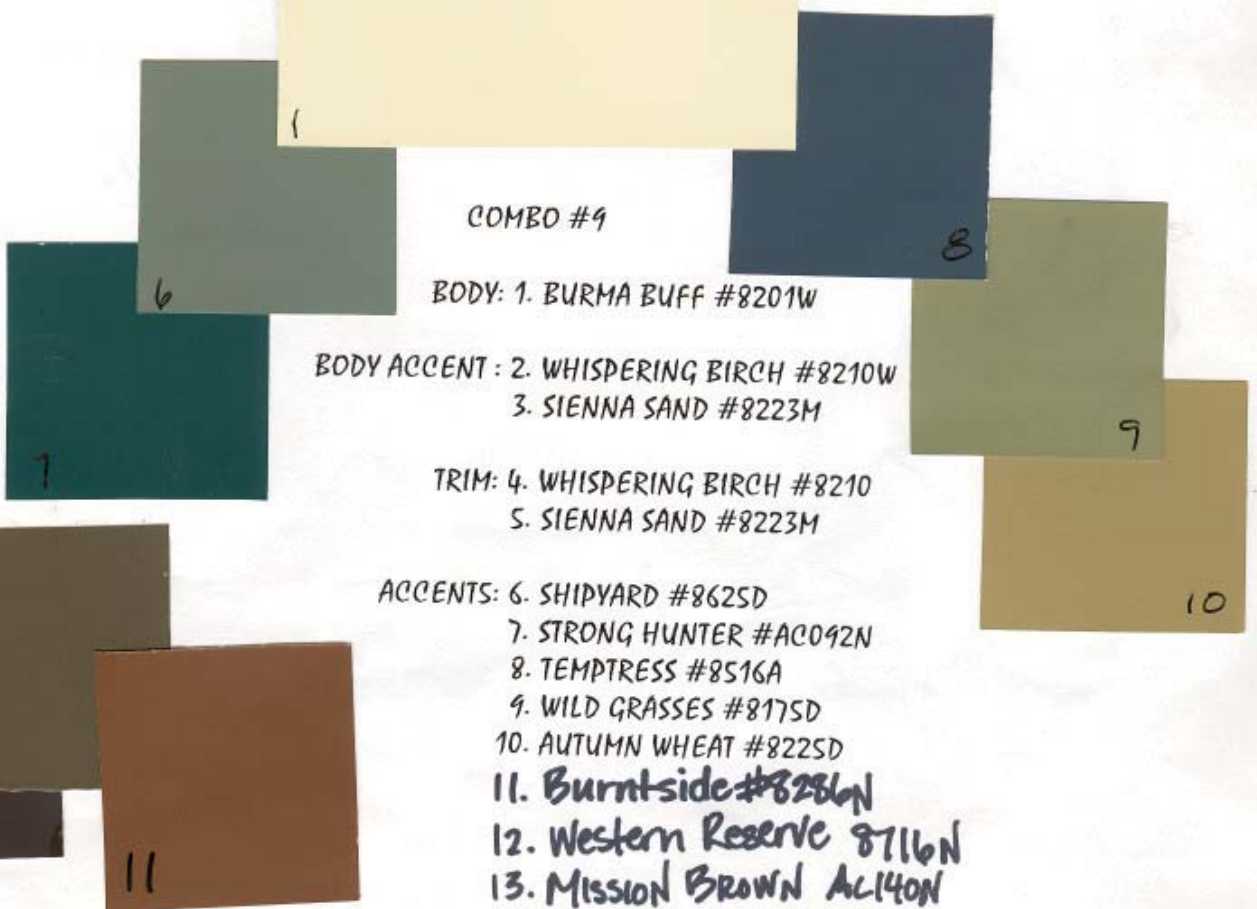 1
8
6
7
9
10
11
COMBO #9
BODY: 1. BURMA BUFF #8201W
BODY ACCENT : 2. WHISPERING BIRCH #8210W
3. SIENNA SAND #8223M
TRIM: 4. WHISPERING BIRCH #8210
5. SIENNA SAND #8223M
ACCENTS: 6. SHIPYARD #8625D
7. STRONG HUNTER #AC092N
8. TEMPTRESS #8516A
9. WILD GRASSES #8175D
10. AUTUMN WHEAT #8225D
11. Burntside #8286N
12. Western Reserve 8716N
13. MISSION BROWN AC140N